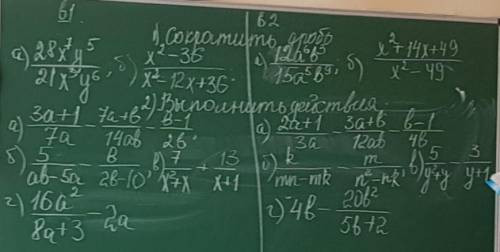 в1 в2
1) Сократить дробь
а) 28x⁷y⁵/21x³y⁶, б) x²-36/x²-12x+36. а) 12a⁶b³/15a⁵b⁹; б) x²+14x+49/x²-49
2) Выполнить действия
а) 3a+1/7a - 7a+b/14ab - b-1/2b. а) 2a+1/3a - 3a+b/12ab - b-1/4b
б) 5/ab-5a - b/2b-10, в) 7/x²+x + 13/x+1 б) k/mn-mk - m/n²-nk, в) 5/y²+y - 3/y+1
г) 16a²/8a+3 - 2a г) 4b - 20b²/5b+2